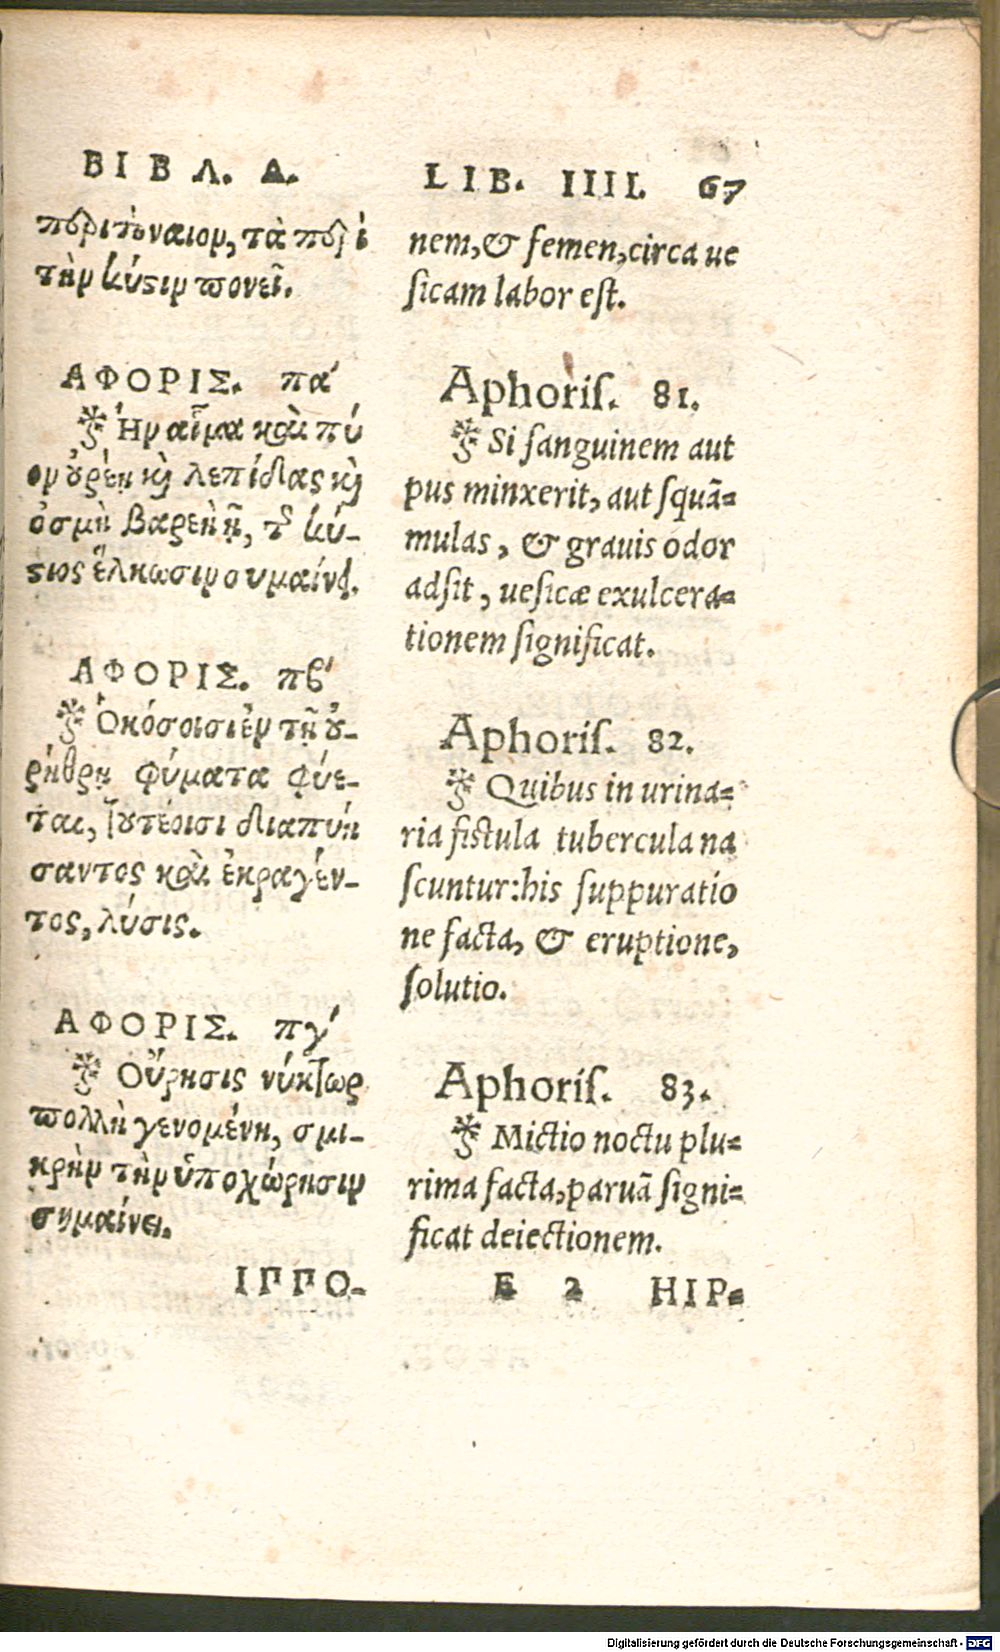 ΒΙΒΛ. Δ.
περιτόναιον, τὰ περὶ
τὴν κύστιν πονεῖ.
ΑΦΟΡΙΣ. πα´
Ἢν αἷμα καὶ πύ
ον οὐρέῃ καὶ λεπίδας καὶ
ὀσμὴ βαρεὴ ᾖ, τῆς κύ-
στιος ἕλκωσιν σημαίνει.
ΑΦΟΡΙΣ. πβ´
Ὁκόσοισιν ἐν τῇ οὐ-
ρήθρῃ φύματα φύε-
ται, τουτέοισι διαπυή
σαντος καὶ ἐκραγέν-
τος, λύσις.
ΑΦΟΡΙΣ. πγ´
Οὔρησις νύκτωρ
πολλὴ γενομένη, σμι-
κρὴν τὴν ὑποχώρησιν
σημαίνει.
ΙΠΠΟ-
LIB. IIII. 67
nem, & femen, circa ue
ſicam labor eſt.
Aphoriſ. 81.
Si ſanguinem aut
pus minxerit, aut ſquã=
mulas, & grauis odor
adſit, ueſicæ exulcera=
tionem ſignificat.
Aphoriſ. 82.
Quibus in urina=
ria fiſtula tubercula na
ſcuntur: his ſuppuratio
ne facta, & eruptione,
ſolutio.
Aphoriſ. 83.
Mictio noctu plu=
rima facta, paruã ſigni=
ficat deiectionem.
E 2 HIP=
Digitalisierung gefördert durch die Deutsche Forschungsgemeinschaft - DFG